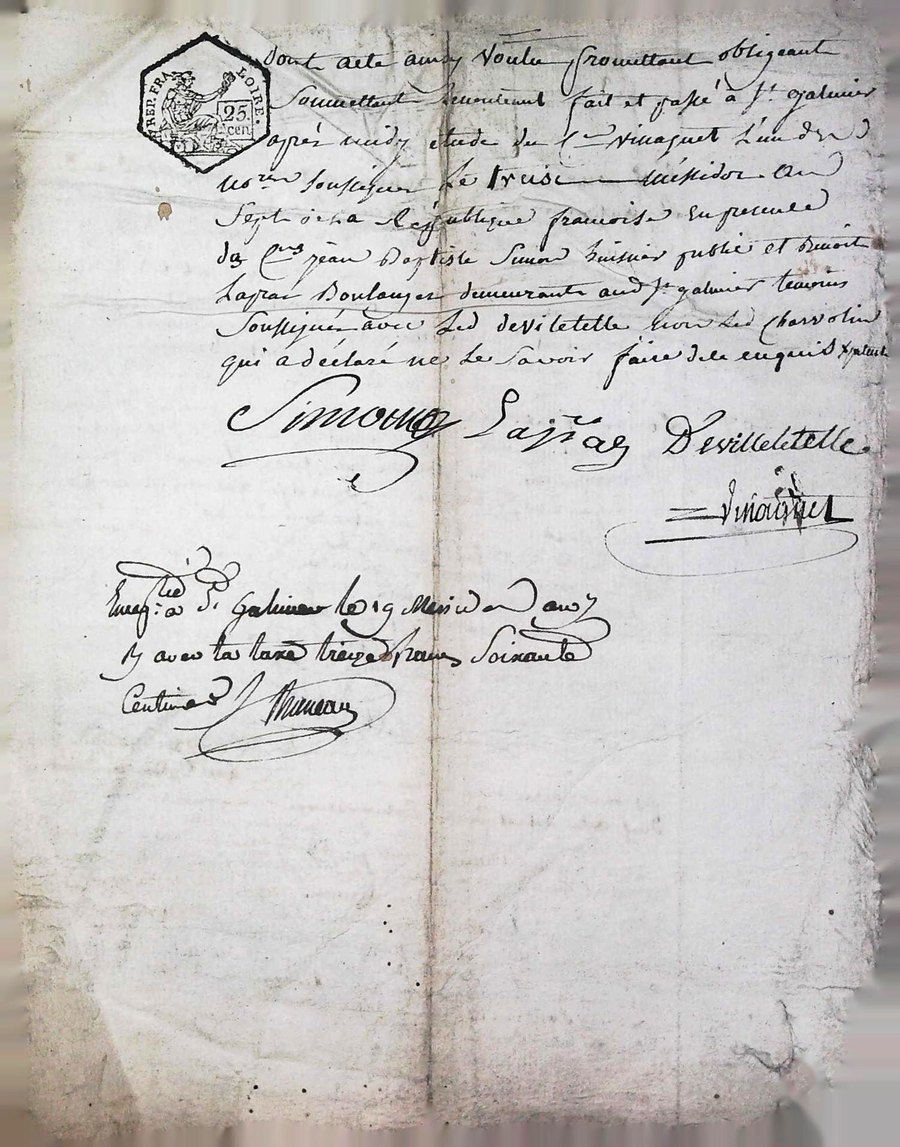 REP. FRA. LOIRE.
25.
cen.
Dont acte ainsy voulu promettant obligeant
soumettant renonceant fait et passé à St galmier
après midy étude du Cen vinagnet l'un des
nores soussignes Le treise messidor an
Sept de La République francoise en presence
des Cens jean Baptiste Simon huissier public et Benoit
Lapras Boulanger demeurants aud St galmier temoins
soussignés avec Led devilletelle non Led Charvolin
qui a déclaré ne Le savoir faire de ce enquis
Simon Lapras Devilletelle
Vinagnet
Enregtré à St Galmier le 19 Messidor an 7
avec la taxe treize francs soixante
Centimes